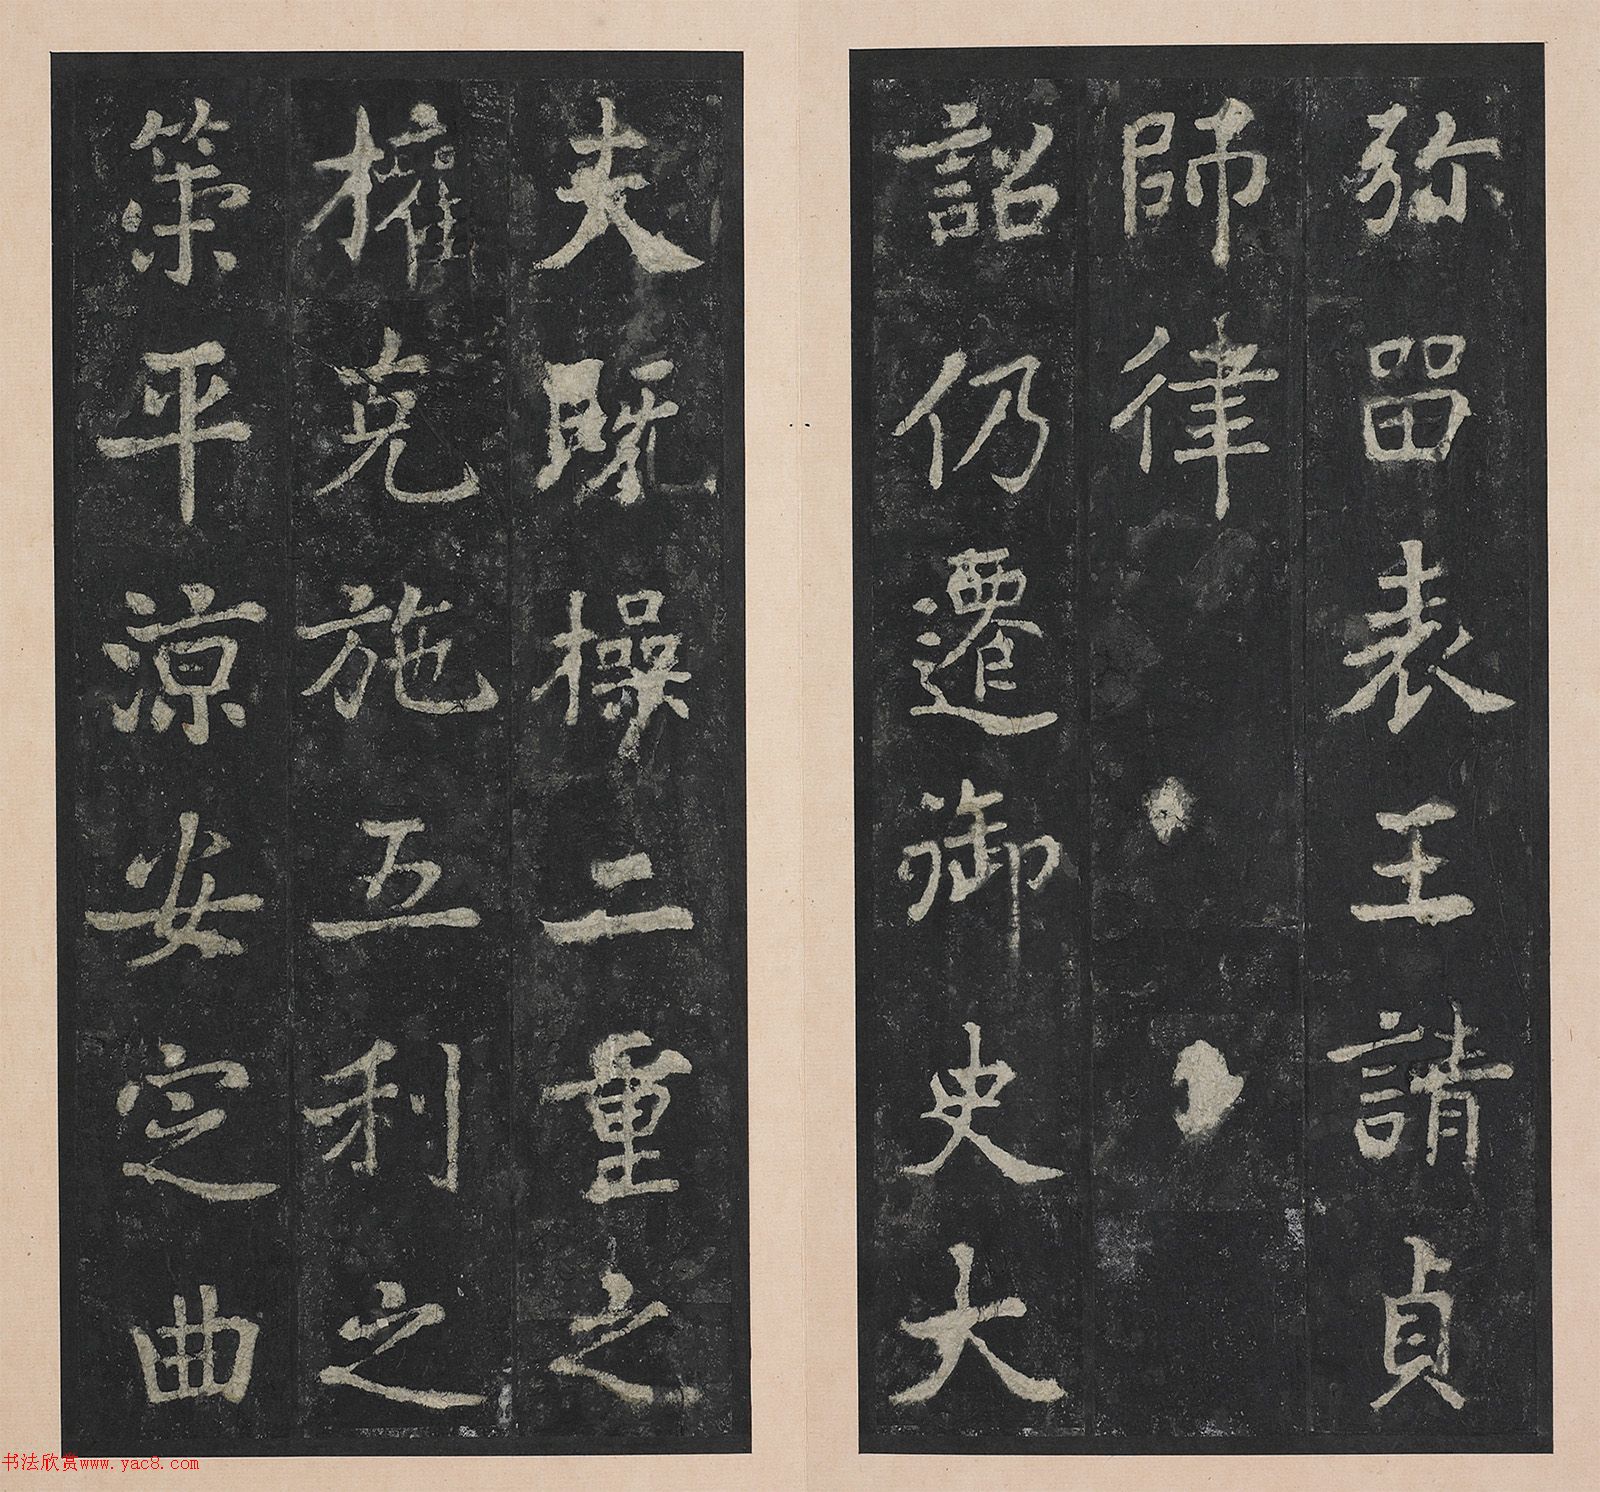 弥留表王請貞
師律
詔仍遷御史大
夫既操二重之
權克施五利之
策平涼安定曲
书法欣赏www.yac8.com